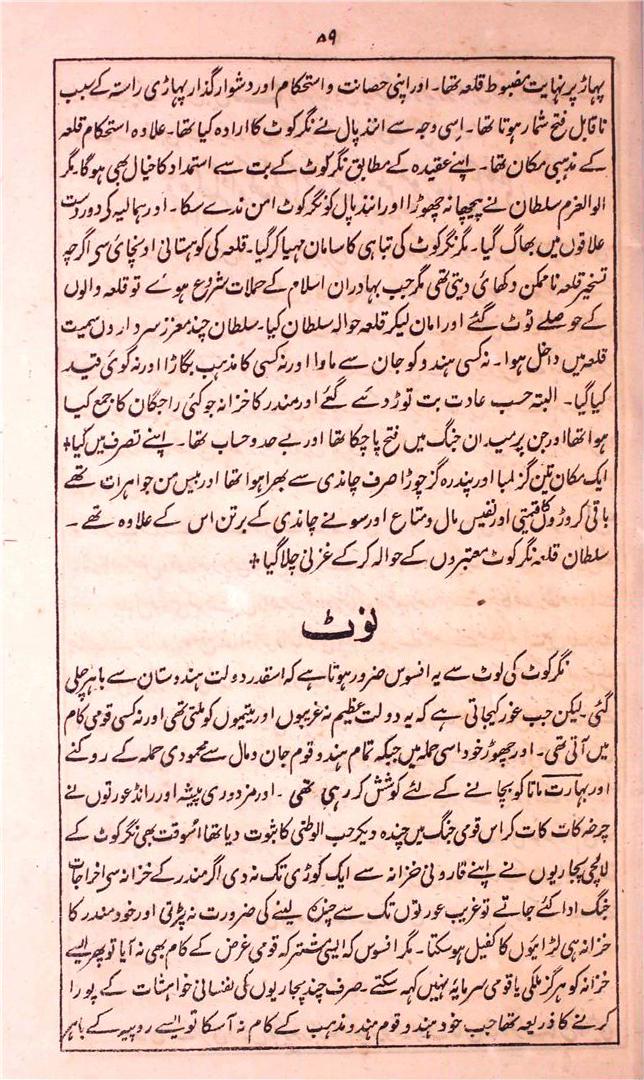 ۵۹
پہاڑ پر نہایت مضبوط قلعہ تھا۔ اور اپنی حصانت و استحکام اور دشوار گذار پہاڑی راستہ کے سبب
ناقابل فتح شمار ہوتا تھا۔ اسی وجہ سے انندپال نے نگرکوٹ کا ارادہ کیا تھا۔ علاوہ استحکام قلعہ
کے مذہبی مکان تھا۔ اپنے عقیدہ کے مطابق نگرکوٹ کے بت سے استمداد کا خیال بھی ہوگا۔ مگر
الوالعزم سلطان نے پیچھا نہ چھوڑا اور انندپال کو نگرکوٹ امن ندے سکا۔ اور ہمالیہ کی دور دست
علاقوں میں بھاگ گیا۔ مگر نگرکوٹ کی تباہی کا سامان مہیا کر گیا۔ قلعہ کی کوہستانی اونچائی سی اگرچہ
تسخیر قلعہ ناممکن دکھائی دیتی تھی مگر جب بہادران اسلام کے حملات شروع ہوے تو قلعہ والوں
کے حوصلے ٹوٹ گئے اور امان لیکر قلعہ حوالہ سلطان کیا۔ سلطان چند معزز سرداروں سمیت
قلعہ میں داخل ہوا۔ نہ کسی ہندو کو جان سے مارا اور نہ کسی کا مذہب بگاڑا اور نہ کوئی قید
کیا گیا۔ البتہ حسب عادت بت توڑ دئے گئے اور مندر کا خزانہ جو کئی راجگان کا جمع کیا
ہوا تھا اور جن پر میدان جنگ میں فتح پا چکا تھا اور بے حد و حساب تھا۔ اپنے تصرف میں کیا +
ایک مکان تین گز لمبا اور پندرہ گز چوڑا صرف چاندی سے بھرا ہوا تھا اور بیس من جواہرات تھے
باقی کروڑوں کا قیمتی اور نفیس مال و متاع اور سونے چاندی کے برتن اس کے علاوہ تھے۔
سلطان قلعہ نگرکوٹ معتبروں کے حوالہ کر کے غزنی چلا گیا +
نوٹ
نگرکوٹ کی لوٹ سے یہ افسوس ضرور ہوتا ہے کہ اسقدر دولت ہندوستان سے باہر چلی
گئی۔ لیکن جب غور کیجاتی ہے کہ یہ دولت عظیم نہ غریبوں اور یتیموں کو ملتی تھی اور نہ کسی قومی کام
میں آتی تھی۔ اور چھوڑ خود اسی حملہ میں جبکہ تمام ہندو قوم جان و مال سے محمودی حملہ کے روکنے
اور بھارت ماتا کو بچانے کے لئے کوشش کر رہی تھی۔ اور مزدوری پیشہ اور رانڈ عورتوں نے
چرخہ کات کات کر اس قومی جنگ میں چندہ دیکر حب الوطنی کا ثبوت دیا تھا اسوقت بھی نگرکوٹ کے
لالچی پجاریوں نے اپنے قارونی خزانہ سے ایک کوڑی تک نہ دی اگر مندر کے خزانہ سی اخراجات
جنگ ادا کئے جاتے تو غریب عورتوں تک سے چندہ لینے کی ضرورت نہ پڑتی اور خود مندر کا
خزانہ ہی لڑائیوں کا کفیل ہو سکتا۔ مگر افسوس کہ ایسی مشترکہ قومی غرض کے کام بھی نہ آیا تو پھر ایسے
خزانہ کو ہرگز ملکی یا قومی سرمایہ نہیں کہہ سکتے۔ صرف چند پجاریوں کی نفسانی خواہشات کے پورا
کرنے کا ذریعہ تھا جب خود ہندو قوم ہندو مذہب کے کام نہ آسکا تو ایسے روپیہ کے باہر